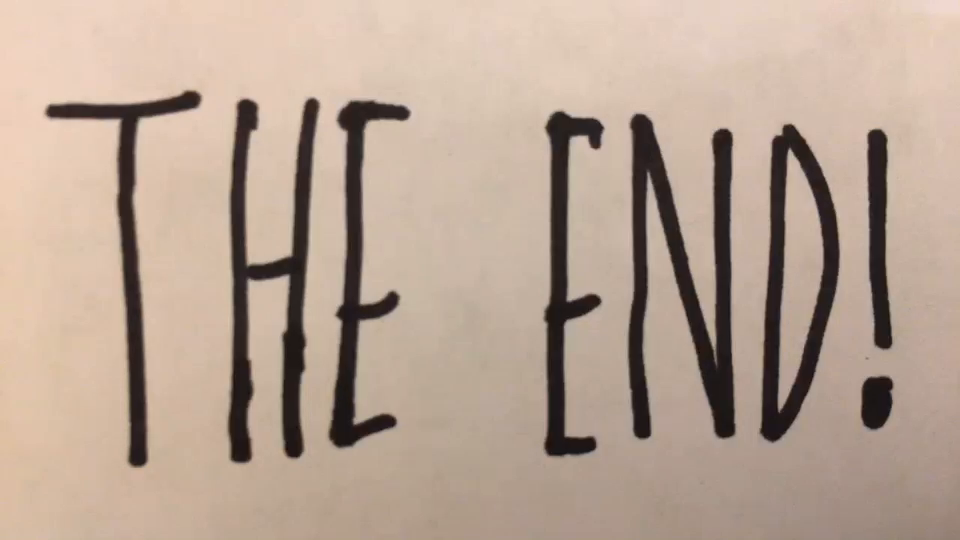 THE END!